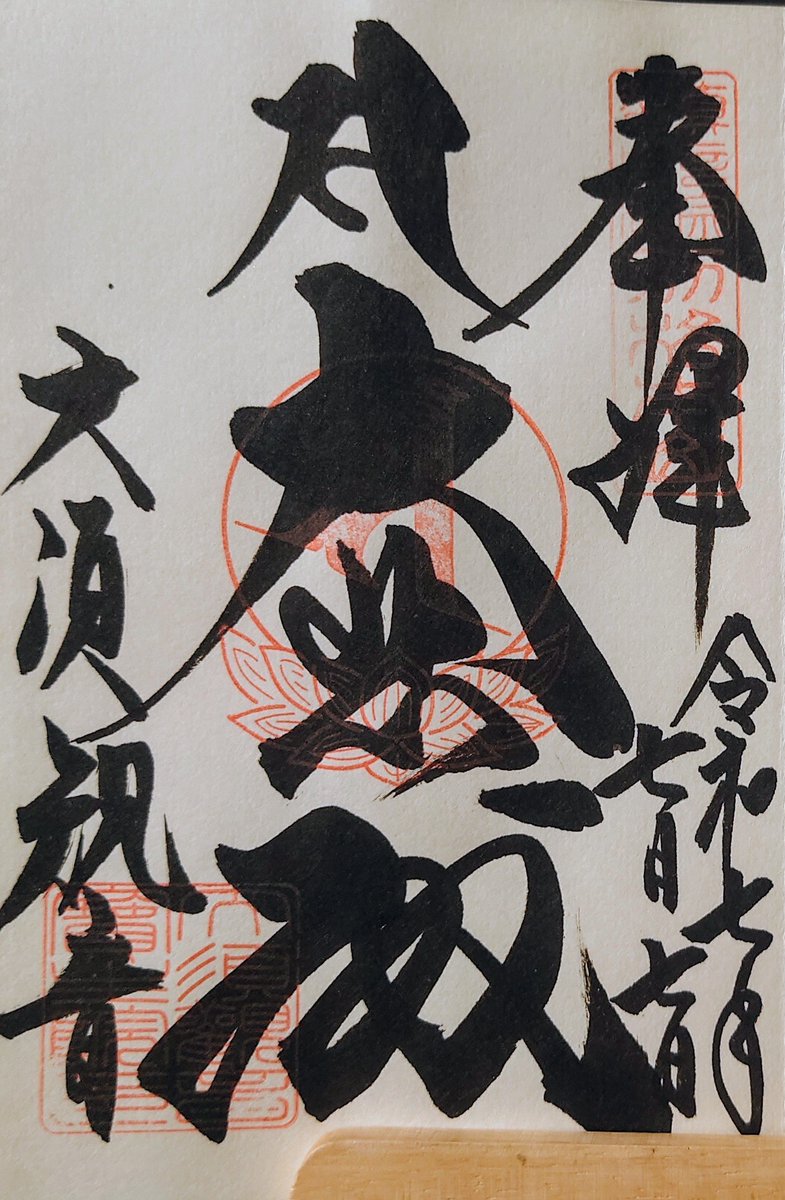 奉拝
令和七年
七月七日
大悲殿
大須観音